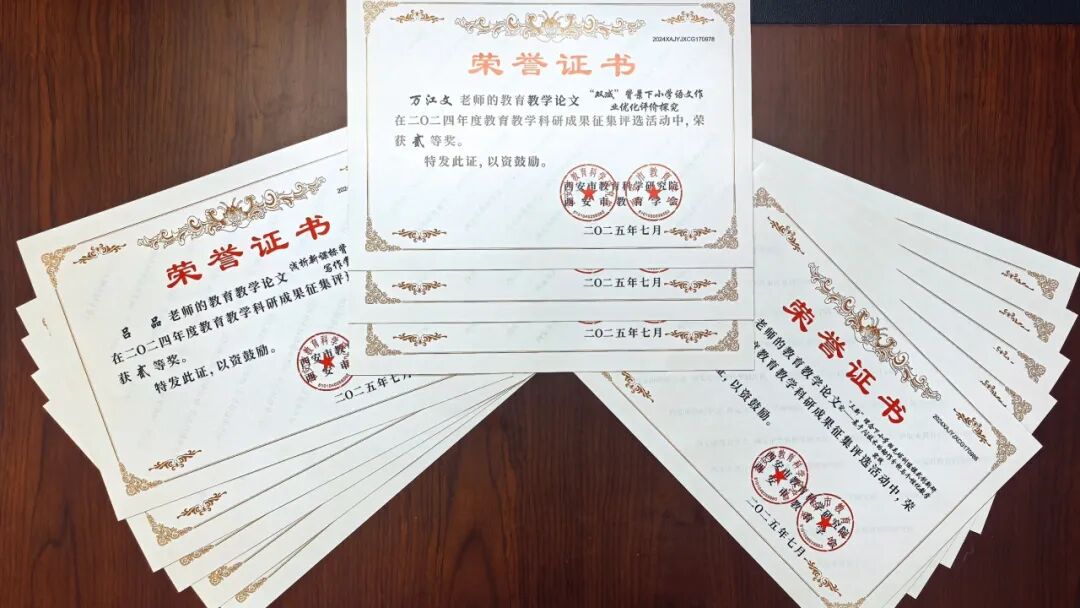 2024XAJYJXCG170978
荣誉证书
万江文 老师的教育教学论文 “双减”背景下小学语文作
业优化评价探究
在二〇二四年度教育教学科研成果征集评选活动中,荣
获 贰 等奖。
特发此证,以资鼓励。
西安市教育科学研究院
西安市教育学会
二〇二五年七月
二〇二五年七月
二〇二五年七月
2024
荣誉证书
吕品 老师的教育教学论文 浅析新课标背
写作
在二〇二四年度教育教学科研成果征集评
获 贰 等奖。
特发此证,以资鼓励。
西安市教
西安市
二〇二五年七月
荣誉证书
2024XAJYJXCG170985
老师的教育教学论文
教育教学科研成果征集评选活动中,荣
证,以资鼓励。
西安市教育科学研究院
西安市教育学会
二〇二五年七月